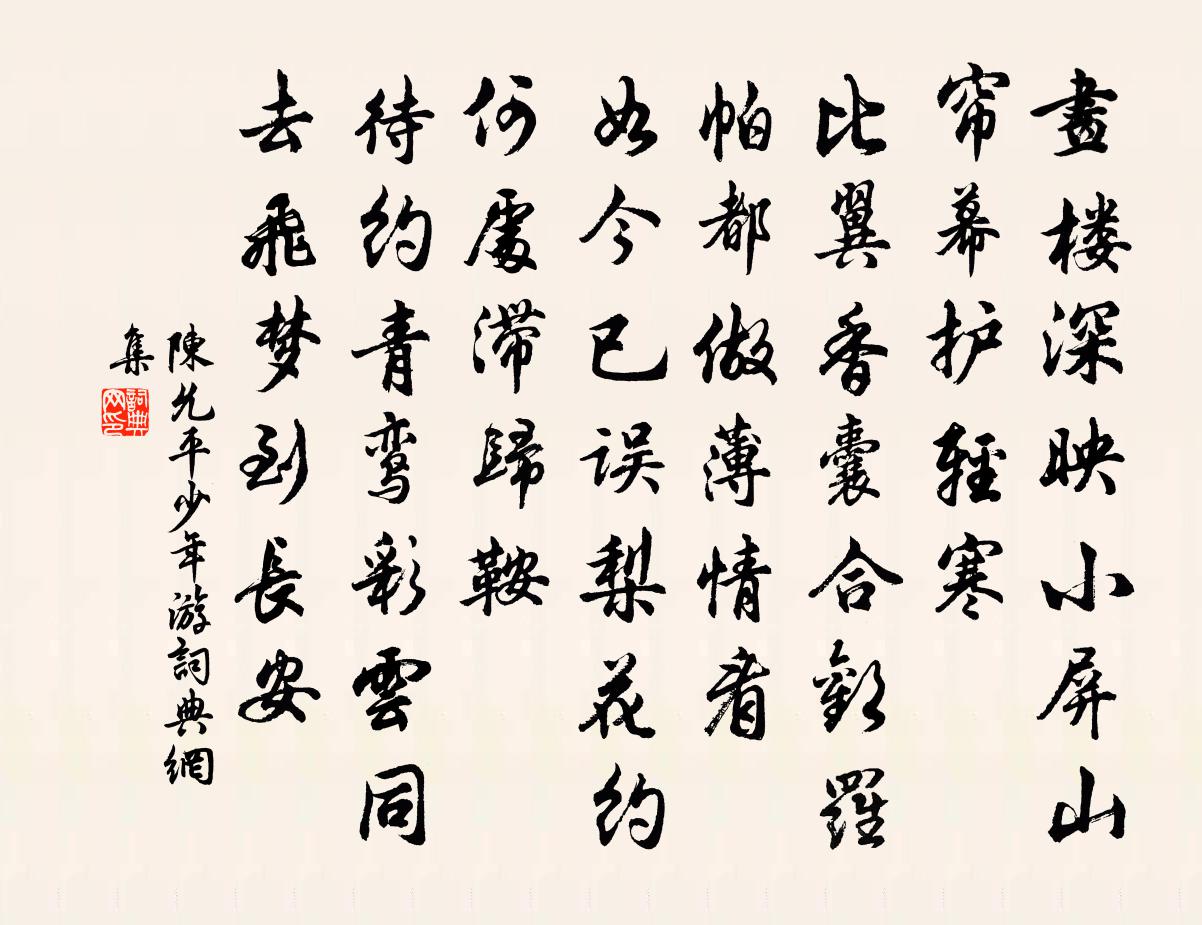 畫楼深映小屏山
帘幕护輕寒
比翼香囊合歡羅
帕都做薄情看
如今已误梨花约
何處滞歸鞍
待约青鸾彩雲同
去飛梦到長安
陳允平少年游詞典網
集
詞典网印